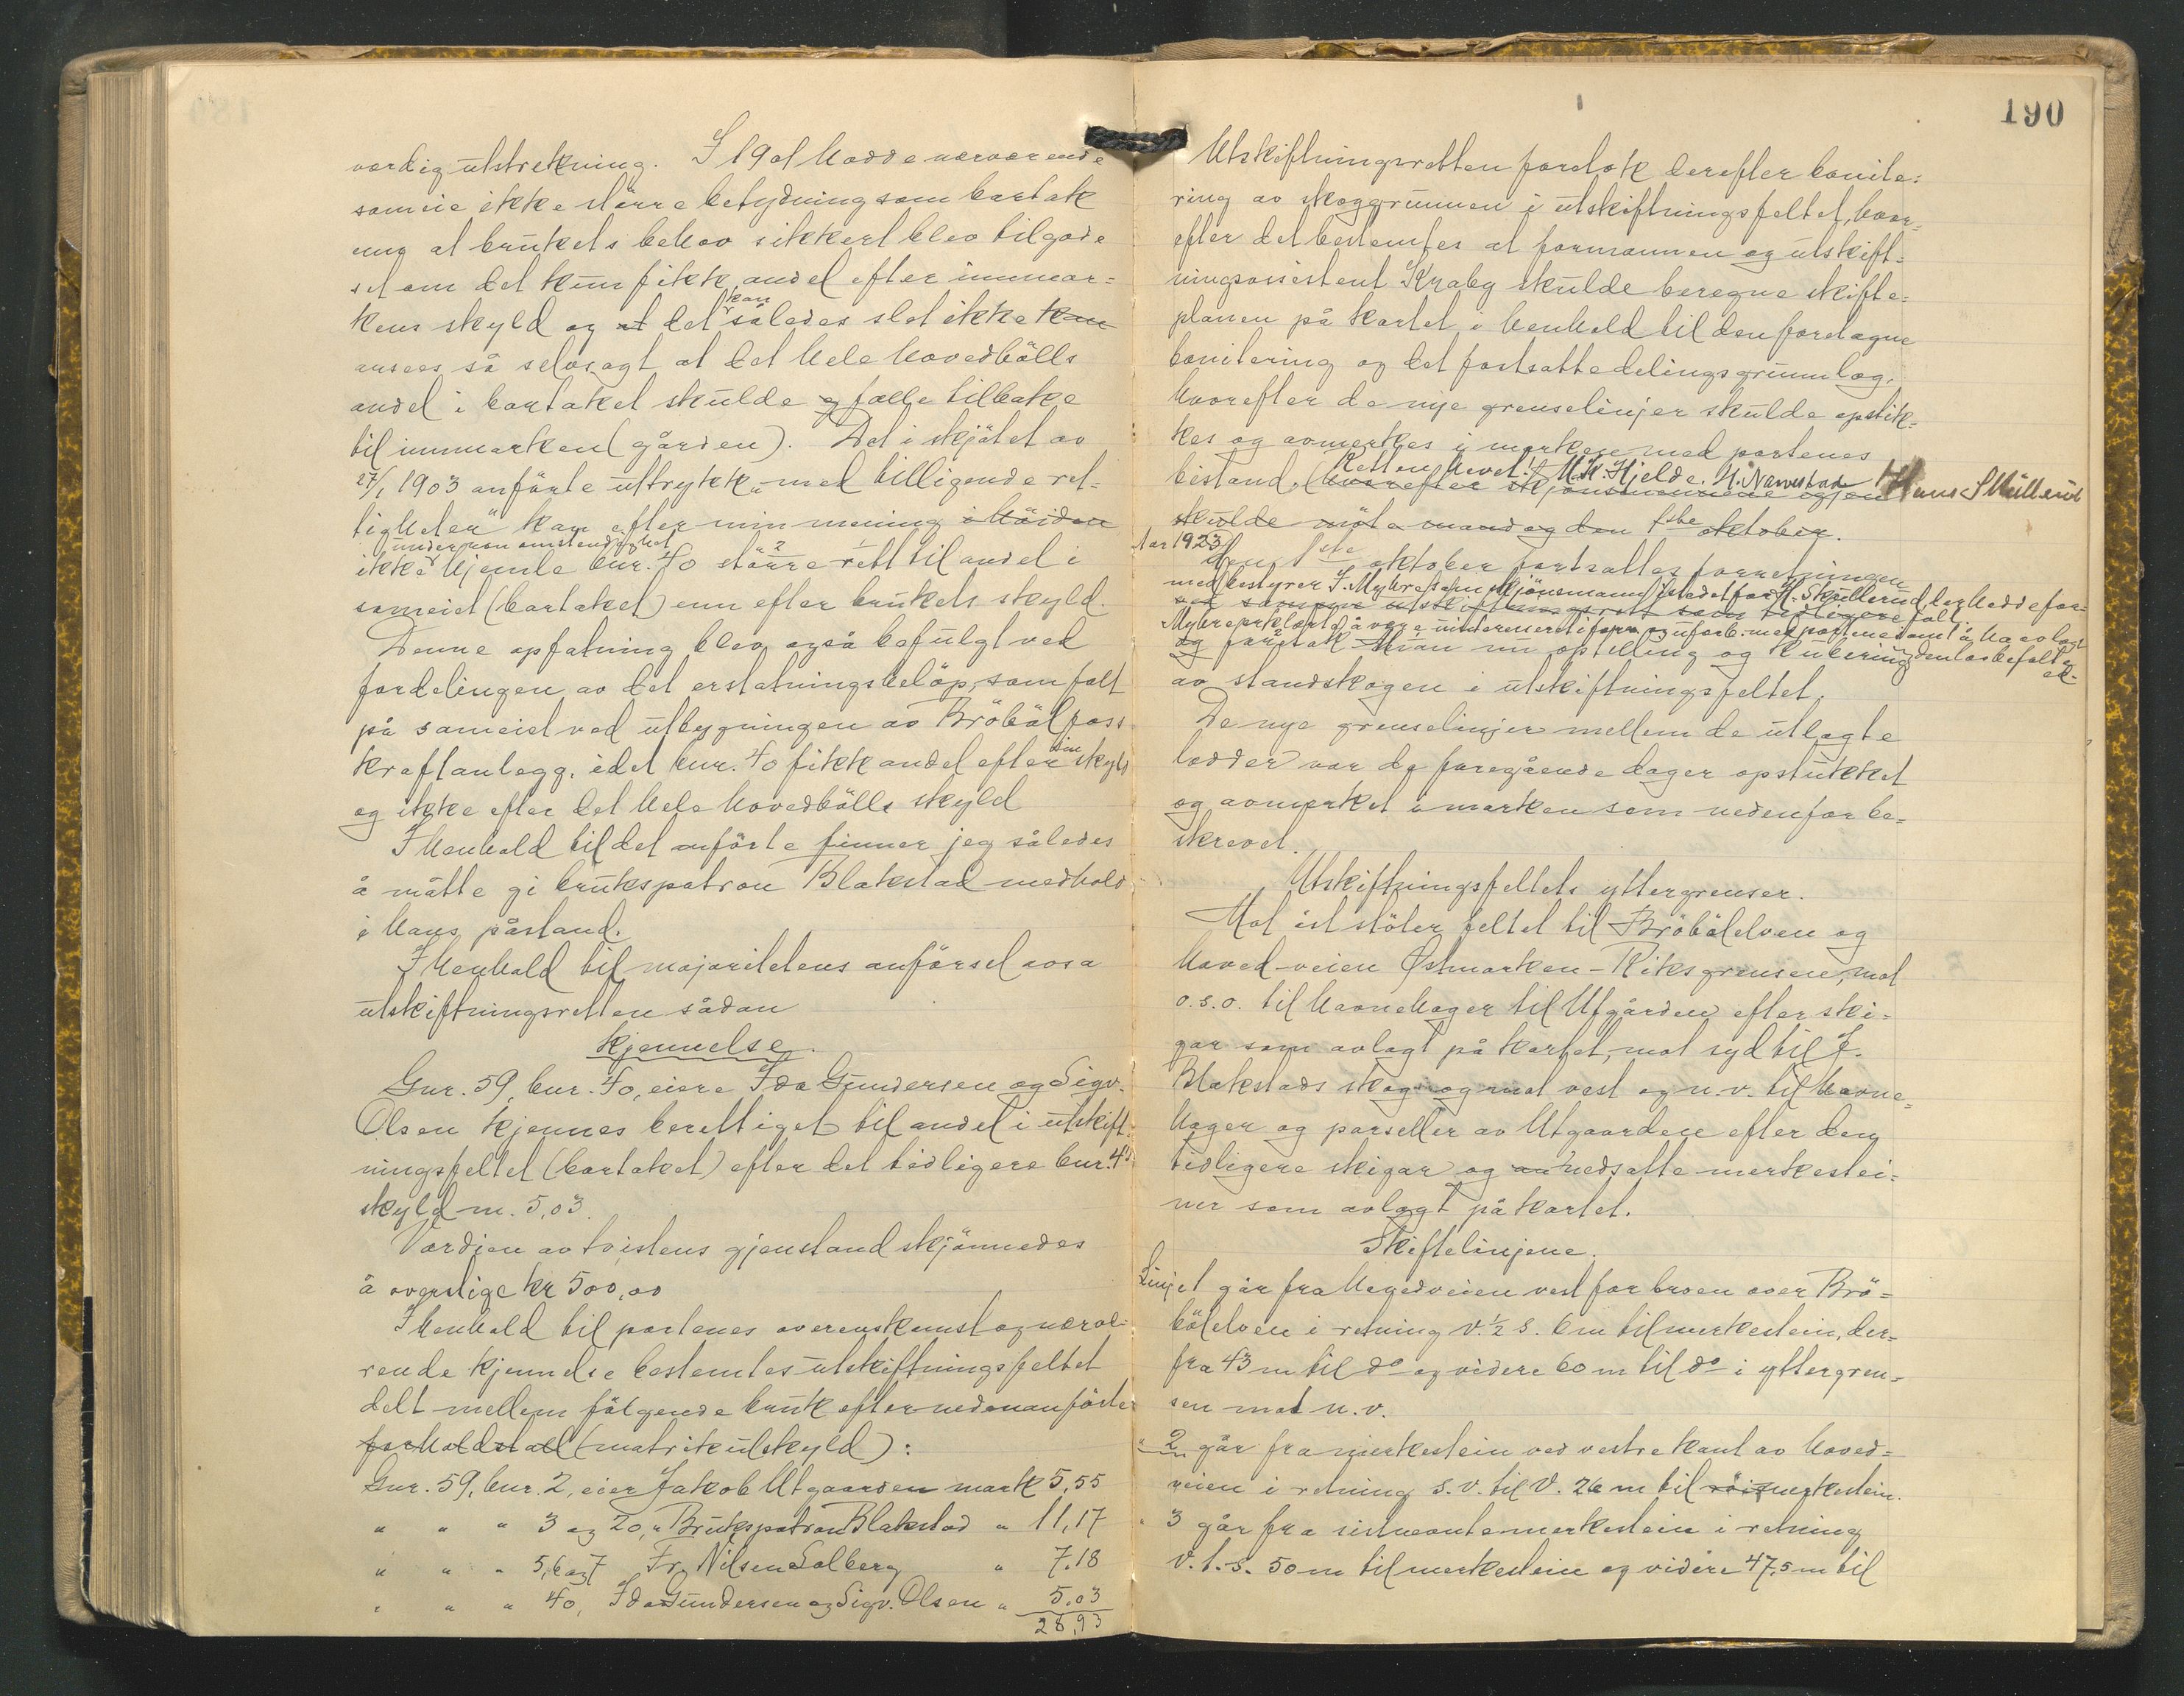 værdig utstrekning. I 1901 hadde nærværende
sameie ikke större betydning som havtak
enn at brukets behov sikkert blev tilgode
set om det kun fikk andel efter innmar=
kens skyld og at det kan således slet ikke kan
ansees så selvsagt at det hele hovedbölls
andel i havtaket skulde og falle tilbake
til innmarken (gården). Det i skjötet av
27/1 1903 anförte uttrykk "med tilligende ret-
tigheter" kan efter min mening i höiden
ikke under noen omstendighet hjemle bnr. 40 större rett til andel i
sameiet (havtaket) enn efter brukets skyld.
Denne opfatning blev også befulgt ved
fordelingen av det erstatningsbelöp, som falt
på sameiet ved utbygningen av Bröbölfoss
kraftanlegg, idet bnr. 40 fikk andel efter sin skyld
og ikke efter det hele hovedbölls skyld
I henhold til det anförte finner jeg således
å måtte gi brukspatron Blakstad medhold
i hans påstand.
I henhold til majoritetens anförsel avsa
utskiftningsretten sådan
kjennelse.
Gnr. 59, bnr. 40, eiere Ida Gundersen og Sigv.
Olsen kjennes berettiget til andel i utskift=
ningsfeltet (havtaket) efter det tidligere bnr. 4s
skyld m. 5,03.
Værdien av tvistens gjenstand skjönnedes
å overstige kr 500,00
I henhold til partenes overenskomst og nærvæ-
rende kjennelse bestemtes utskiftningsfeltet
delt mellem fölgende bruk efter nedenanförte
forholdstall (matrikulskyld):
Gnr. 59, bnr. 2, eier Jakob Utgaarden mark 5,55
" " " 3 og 20, " Brukspatron Blakstad " 11,17
" " " 5, 6 og 7 Fr. Nilsen Solberg " 7.18
" " " 40, Ida Gundersen og Sigv. Olsen " 5.03
28,93
190
Utskiftningsretten foretok derefter bonite=
ring av skoggrunnen i utskiftningsfeltet, hvor=
efter det bestemtes at formannen og utskift=
ningsassistent Kraby skulde beregne skifte=
planen på kartet i henhold til den foretagne
bonitering og det fastsatte delingsgrunnlag,
hvorefter de nye grenselinjer skulde opstik=
kes og avmerkes i marken med partenes
bistand. Retten hevet! M.K. Hjelde. H. Navnstad Hans Skullerud
(hvorefter skjönsmennene igjen
skulde möte mandag den 1ste oktober.
Aar 1923
Den 1ste oktober fortsattes forretningen
med bestyrer J. Myhre som skjönsmann istedet for H. Skullerud, der hadde for=
ved samme utskiftningsrett som tidligere fall.
Myhre erklærte å være uinteressert i forr. og uforb. med partene samt å ha avlagt
og foretok man nu optelling og kubering den lovbefalte ed.
av standskogen i utskiftningsfeltet.
De nye grenselinjer mellem de utlagte
lodder var de foregående dager opstukket
og avmerket i marken som nedenfor be=
skrevet.
Utskiftningsfeltets yttergrenser.
Mot öst stöter feltet til Bröbölelven og
hoved-veien Østmarken - Riksgrensen, mot
o.s.o. til havnehager til Utgården efter ski=
gar som avlagt på kartet, mot syd til J.
Blakstads skog og mot vest og n.v. til havne=
hager og parseller av Utgaarden efter den
tidligere skigar og nedsatte merkestei=
ner som avlagt på kartet.
Skiftelinjene.
Linje 1 går fra hovedveien vest for broen over Brö=
bölelven i retning v. ½ s. 6 m til merkestein, der=
fra 43 m til do og videre 60 m til do i yttergren=
sen mot n.v.
" 2 går fra merkestein ved vestre kant av hoved=
veien i retning s.v. til v. 26 m til röis merkestein.
" 3 går fra sistnevnte merkestein i retning
v.t.s. 50 m til merkestein og videre 47,5 m til